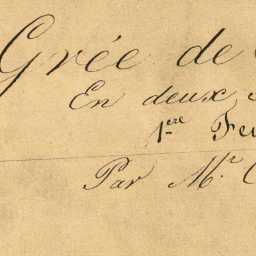 Grée de
En deux
1.ere Feu
Par Mr. C